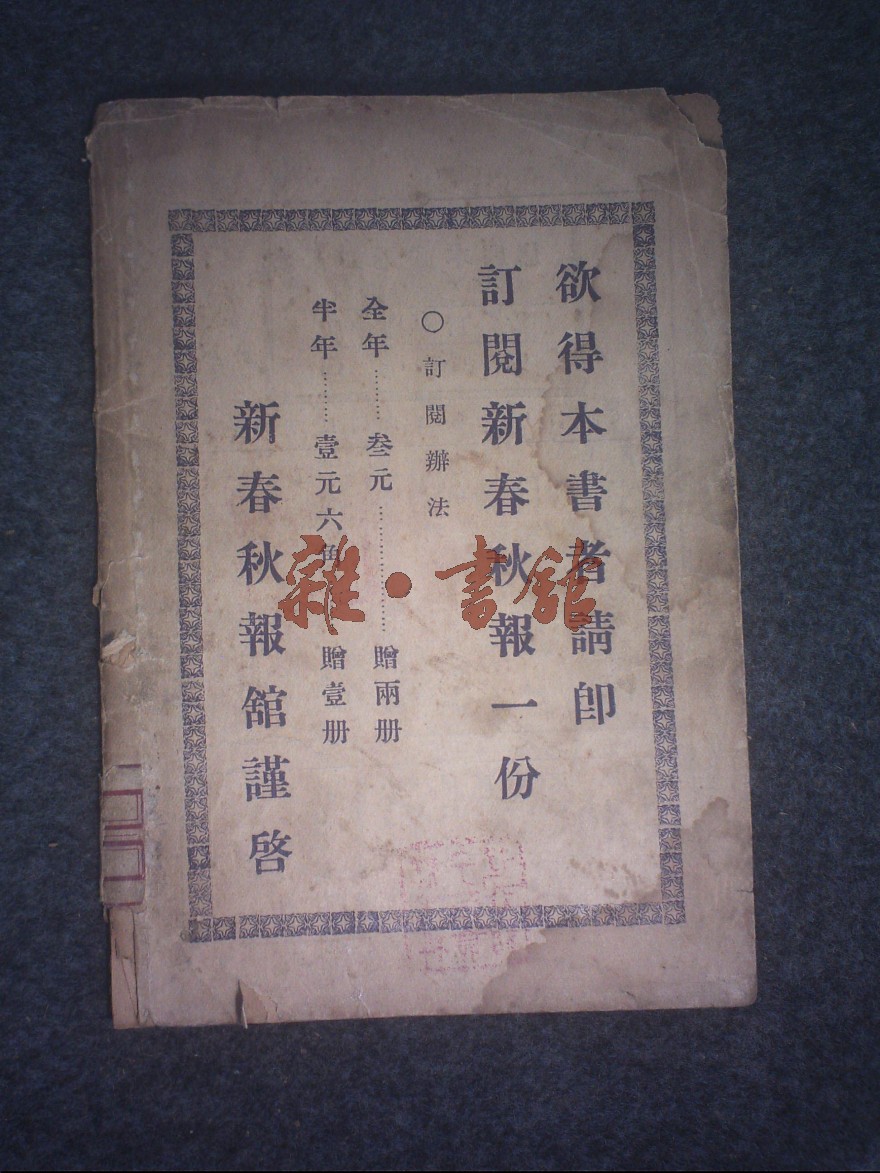 欲得本書者請卽
訂閱新春秋報一份
○訂閱辦法
全年………叁元………………贈兩册
半年………壹元六角………贈壹册
新春秋報舘謹啓
雜·書館